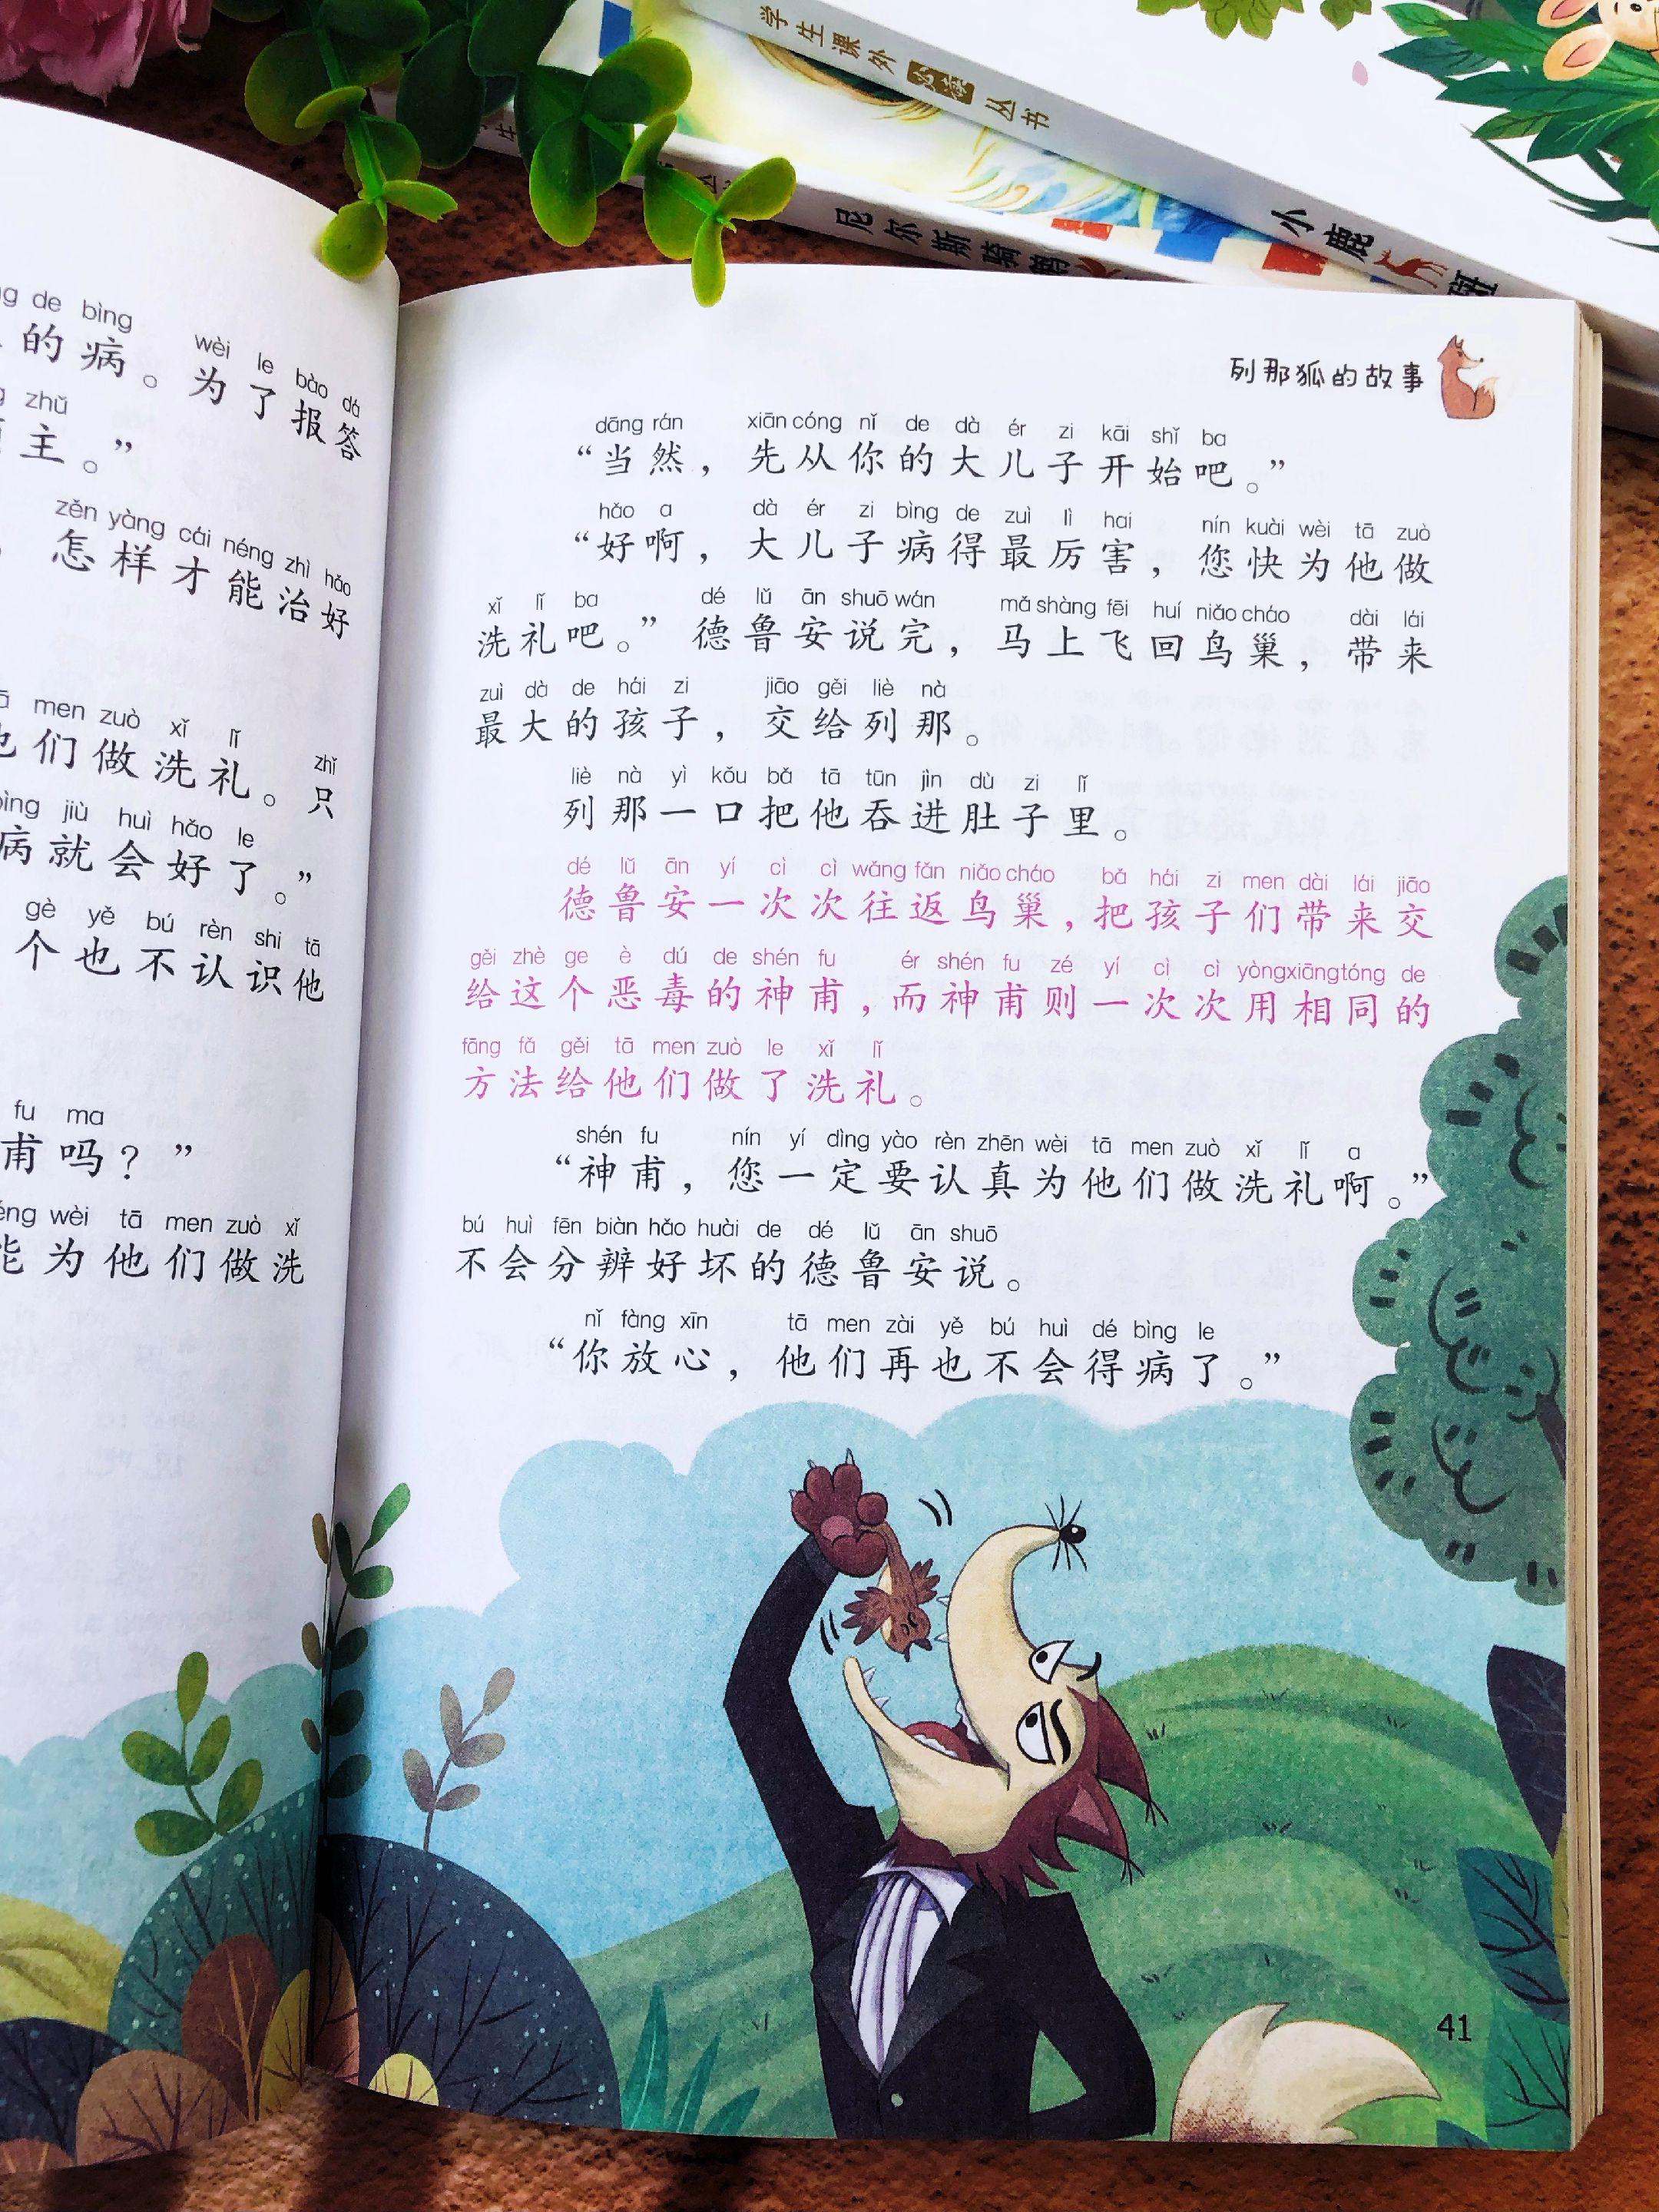 学生课外必读丛书
小鹿斑
尼尔斯骑鹅
g de bìng
的病。
wèi le bào dá
为了报答
zhǔ
主。”
zěn yàng cái néng zhì hǎo
怎样才能治好
men zuò xǐ lǐ
们做洗礼。
zhǐ
只
bìng jiù huì hǎo le
病就会好了。”
gè yě bú rèn shi tā
个也不认识他
fu ma
甫吗？”
éng wèi tā men zuò xǐ
能为他们做洗
列那狐的故事
dāng rán xiān cóng nǐ de dà ér zi kāi shǐ ba
“当然，先从你的大儿子开始吧。”
hǎo a dà ér zi bìng de zuì lì hai nín kuài wèi tā zuò
“好啊，大儿子病得最厉害，您快为他做
xǐ lǐ ba dé lǔ ān shuō wán mǎ shàng fēi huí niǎo cháo dài lái
洗礼吧。”德鲁安说完，马上飞回鸟巢，带来
zuì dà de hái zi jiāo gěi liè nà
最大的孩子，交给列那。
liè nà yì kǒu bǎ tā tūn jìn dù zi lǐ
列那一口把他吞进肚子里。
dé lǔ ān yí cì cì wǎng fǎn niǎo cháo bǎ hái zi men dài lái jiāo
德鲁安一次次往返鸟巢，把孩子们带来交
gěi zhè ge è dú de shén fu ér shén fu zé yí cì cì yòng xiāng tóng de
给这个恶毒的神甫，而神甫则一次次用相同的
fāng fǎ gěi tā men zuò le xǐ lǐ
方法给他们做了洗礼。
shén fu nín yí dìng yào rèn zhēn wèi tā men zuò xǐ lǐ a
“神甫，您一定要认真为他们做洗礼啊。”
bú huì fēn biàn hǎo huài de dé lǔ ān shuō
不会分辨好坏的德鲁安说。
nǐ fàng xīn tā men zài yě bú huì dé bìng le
“你放心，他们再也不会得病了。”
41